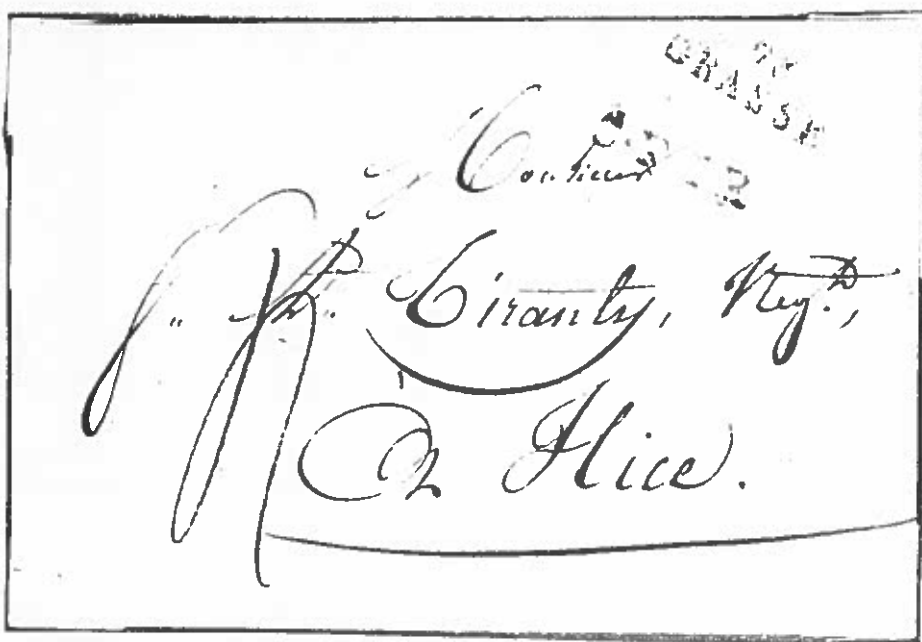 GRASSE
Monsieur
J. Bte. Tiranty, Negt.,
à Nice.